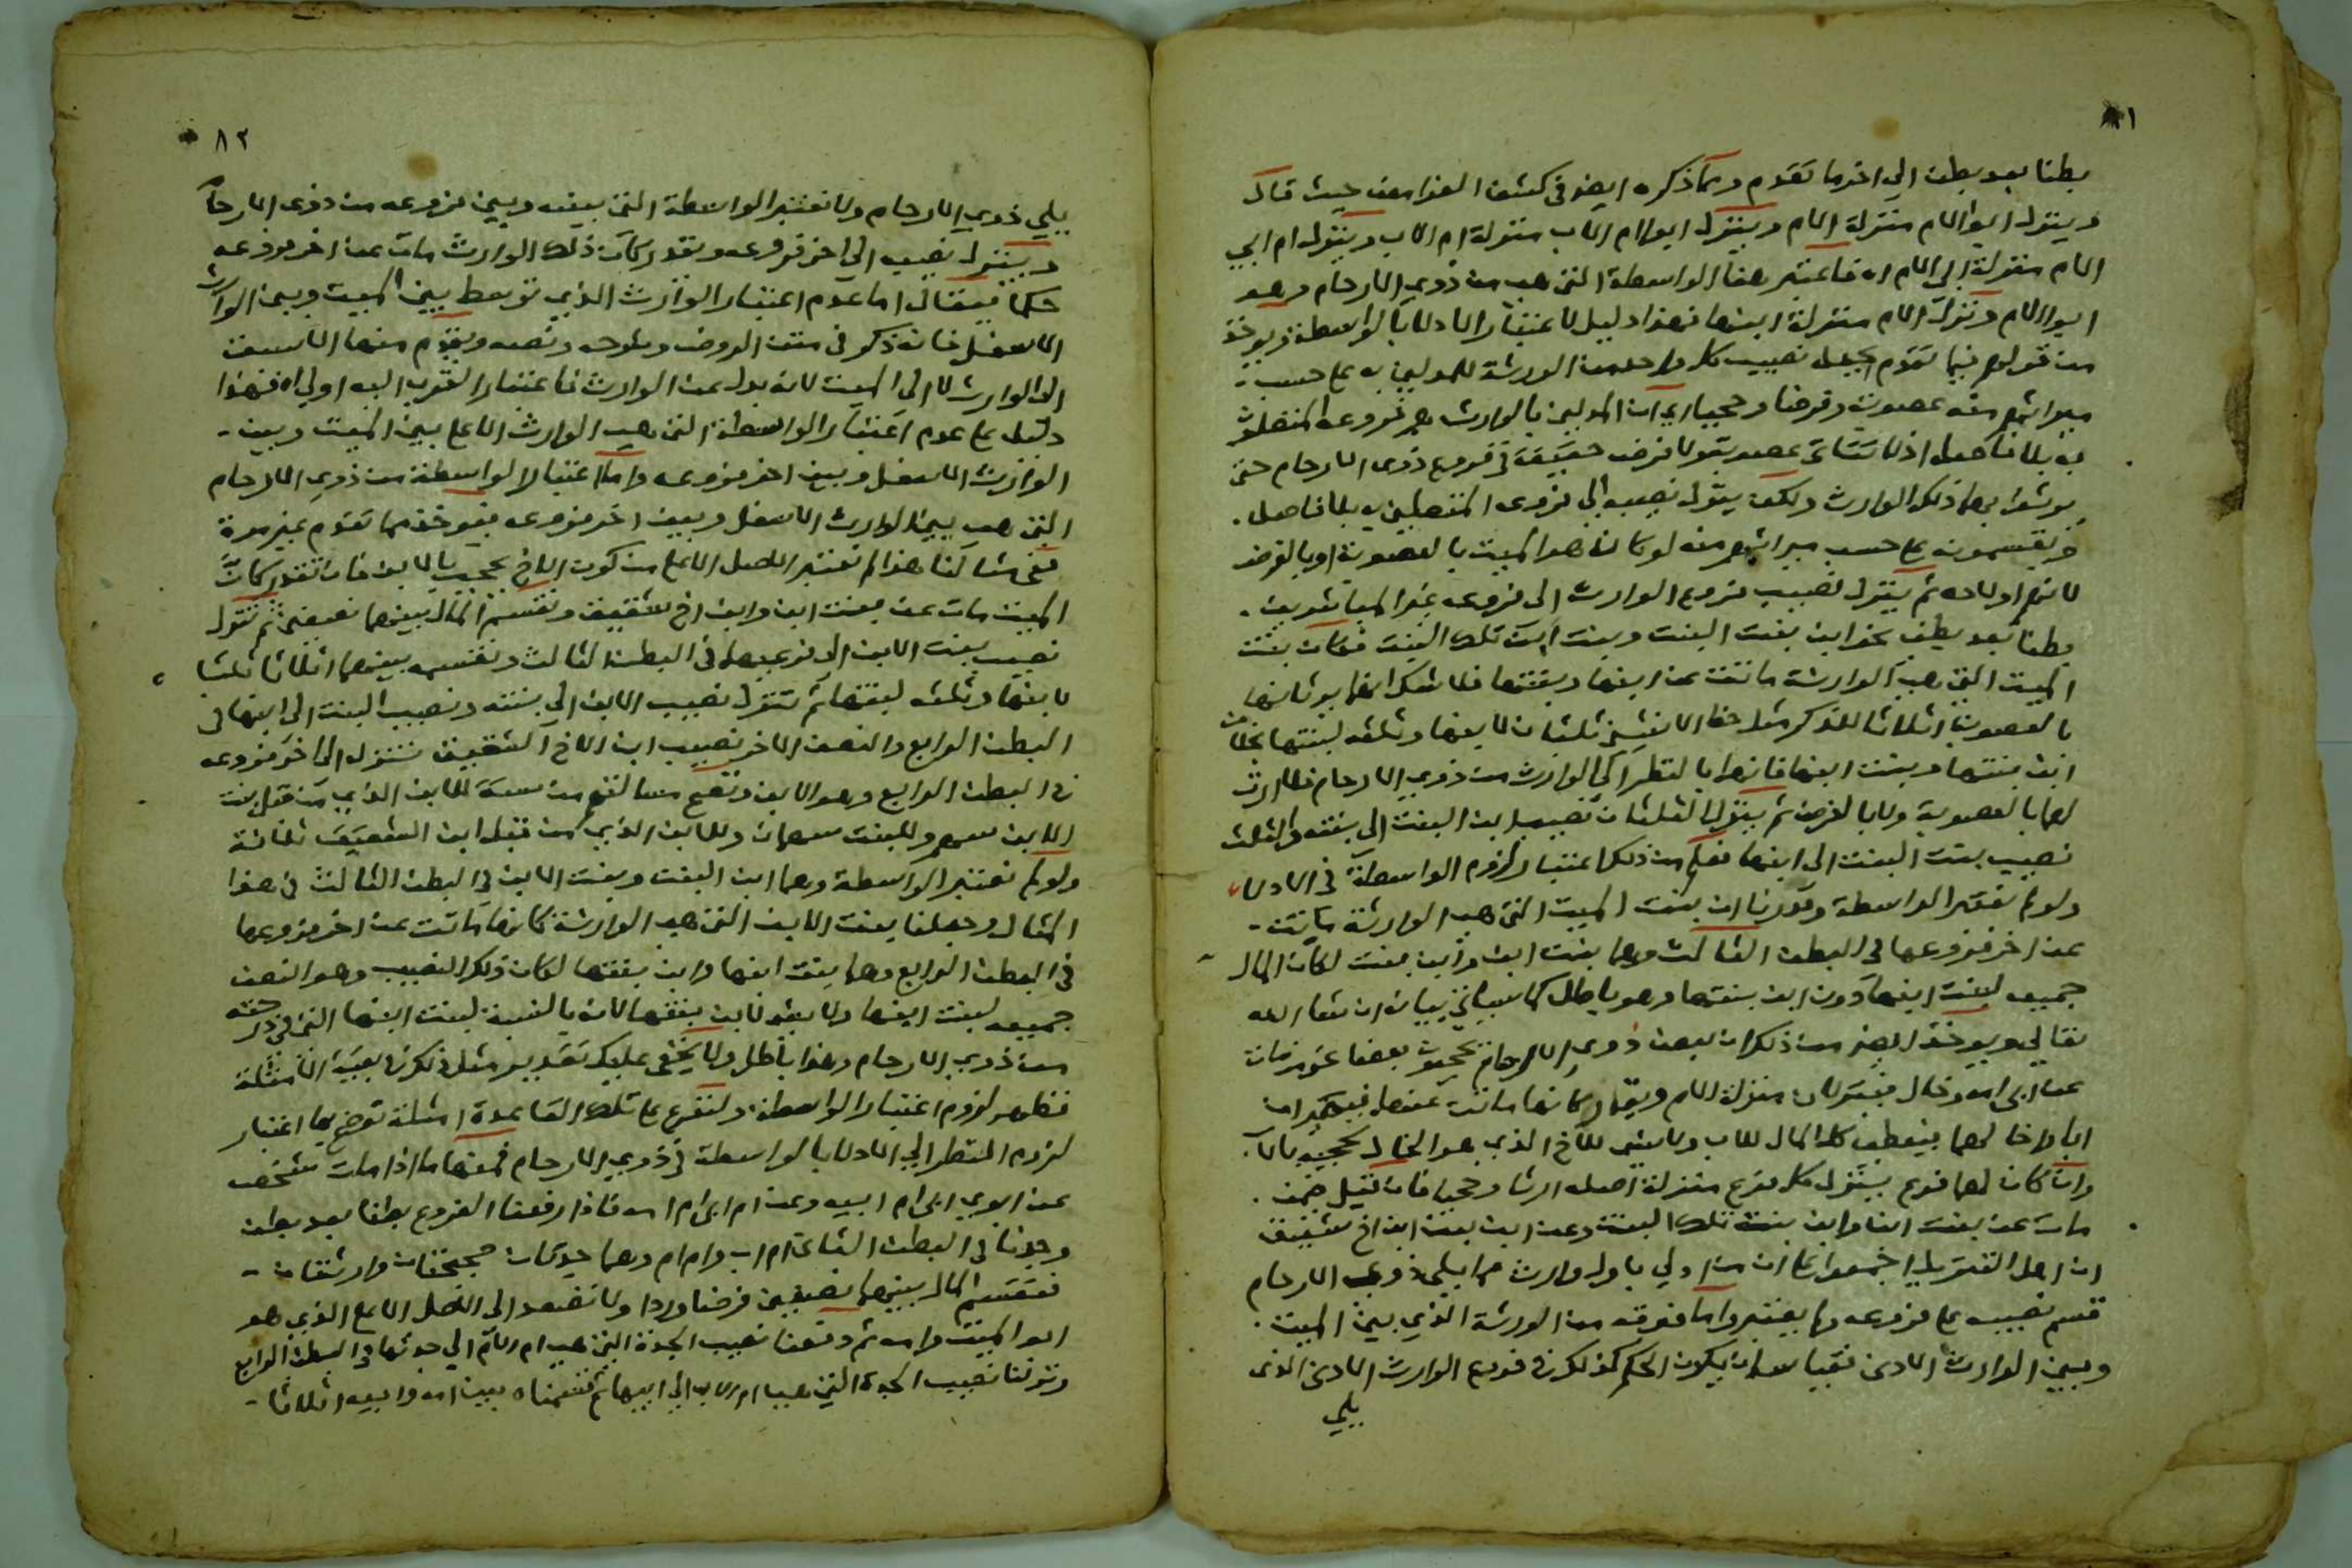 ٨١
بطنا بعد بطن الى اخر ما تقدم ومما ذكره ايضا في كشف الغوامض حيث قال
وينزل ابو الام منزلة الام وينزل ابو ام الاب منزلة ام الاب وينزل ام ابي
الام منزلة ابي الام اه فاعتبر هنا الواسطة التي هي من ذوي الارحام وهو
ابو الام ونزل الام منزلة ابنها فهذا دليل لاعتبار الادلاء بالواسطة ويوخذ
من قولهم فيما تقدم يجعل نصيب كل واحد من الورثة للمدلين به على حسب
ميراثهم منه عصوبة وفرضا وحجبا اي ان المدلين بالوارث هم فروعه المتصلون
به بلا فاصل اذ لا يتاتى عصوبة ولا فرض حقيقة في فروع ذوي الارحام حتى
يورثوا بهما ذلك الوارث ولكن ينزل نصيبه الى فروعه المتصلين به بلا فاصل
ويقسمونه على حسب ميراثهم منه لو كان هو الميت بالعصوبة او بالفرض
لانهم اولاده ثم ينزل نصيب فروع الوارث الى فروعه غير المباشرين
بطنا بعد بطن نحو ابن بنت البنت وبنت ابن تلك البنت فكان بنت
الميت التي هي الوارثة ماتت عن ابنها وبنتها فلا شك انهما يرثانها
بالعصوبة اثلاثا للذكر مثل حظ الانثيين ثلثان لابنها وثلثه لبنتها بخلاف
ابن بنتها وبنت ابنها فانهما بالنظر الى الوارث من ذوي الارحام فلا ارث
لهما بالعصوبة ولا بالفرض ثم ينزل الثلثان نصيب ابن البنت الى بنته والثلث
نصيب بنت البنت الى ابنها فعلم من ذلك اعتبار لزوم الواسطة في الادلاء
ولو لم نعتبر الواسطة وقدرنا ان بنت الميت التي هي الوارثة ماتت
عن اخر فروعها في البطن الثالث وهما بنت ابن وابن بنت لكان المال
جميعه لبنت ابنها دون ابن بنتها وهو باطل كما سياتي بيانه ان شاء الله
تعالى ويوخذ ايضا من ذلك ان بعض ذوي الارحام يحجبون بعضا فمن مات
عن ابي امه وخال فينزلان منزلة الام ويقدر كانها ماتت عنهما فيجد ان
ابا واخا لهما فيعطى كل المال للاب ولا شيء للاخ الذي هو الخال لحجبه بالاب
وان كان لهما فروع ينزل كل فرع منزلة اصله ارثا وحجبا فان قيل فيمن
مات عن بنت ابن وابن بنت تلك البنت وعن ابن بنت ابن اخ شقيق
ان اهل التنزيل اجمعوا على ان من ادلى باول وارث مما يلي ذوي الارحام
قسم نصيبه على فروعه ولم يعتبروا ما فوقه من الورثة الذي بين الميت
وبين الوارث الادنى فقياسه ان يكون الحكم كذلك في فروع الوارث الادنى الذي
يلي
٨٢
يلي ذوي الارحام ولا نعتبر الواسطة التي بينه وبين فروعه من ذوي الارحام
وينزل نصيبه الى اخر فروعه ويقدر كان ذلك الوارث مات عن اخر فروعه
حكما فيقال اما عدم اعتبار الوارث الذي توسط بين الميت وبين الوارث
الاسفل فانه ذكر في متن الروض وشرحه ونصه ويقدم منها الاسبق
الى الوارث لا الى الميت لانه بدل عن الوارث فاعتبار القرب اليه اولى اه فهذا
دليل على عدم اعتبار الواسطة التي هي الوارث الاعلى بين الميت وبين
الوارث الاسفل وبين اخر فروعه واما اعتبار الواسطة من ذوي الارحام
التي هي بين الوارث الاسفل وبين اخر فروعه فيوخذ مما تقدم غير مرة
ففي مثالنا هذا لم نعتبر الاصل الاعلى من كون الاخ يحجب بالابن فان تقدر كان
الميت مات عن بنت ابن وابن اخ شقيق ونقسم المال بينهما نصفين ثم ننزل
نصيب بنت الابن الى فرعيها في البطن الثالث ونقسمه بينهما اثلاثا ثلثا
لابنها وثلثه لبنتها ثم ننزل نصيب الابن الى بنته ونصيب البنت الى ابنها في
البطن الرابع والنصف الاخر نصيب ابن الاخ الشقيق ننزله الى اخر فروعه
في البطن الرابع وهو الابن وتصح مسالتهم من ستة للابن الذي من قبل بنت
الابن سهم وللبنت سهمان وللابن الذي من قبل ابن الشقيق ثلاثة
ولو لم نعتبر الواسطة وهما ابن البنت وبنت الابن في البطن الثالث في هذا
المثال وجعلنا بنت الابن التي هي الوارثة كانها ماتت عن اخر فروعها
في البطن الرابع وهما بنت ابنها وابن بنتها لكان ذلك النصيب وهو النصف
جميعه لبنت ابنها ولا يعد لابن بنتها لانه بالنسبة لبنت ابنها التي في درجته
من ذوي الارحام وهذا باطل ولا يخفى عليك تقدير مثل ذلك في بقية الامثلة
فظهر لزوم اعتبار الواسطة ولنفرع على تلك القاعدة امثلة توضح بها اعتبار
لزوم النظر الى الادلاء بالواسطة في ذوي الارحام فمنها ما اذا مات شخص
عن ابوي ابي ام ابيه وعن ام ابي ام امه فاذا رفعنا الفروع بطنا بعد بطن
وجدنا في البطن الثاني ام اب وام ام وهما جدتان صحيحتان وارثتان
فنقسم المال بينهما نصفين فرضا وردا ولا نصعد الى الاصل الاعلى الذي هو
ابو الميت وامه ثم دفعنا نصيب الجدة التي هي ام الام الى جدتها في البطن الرابع
ونزلنا نصيب الجدة التي هي ام الاب الى ابيها ثم قسمناه بين امه وابيه اثلاثا